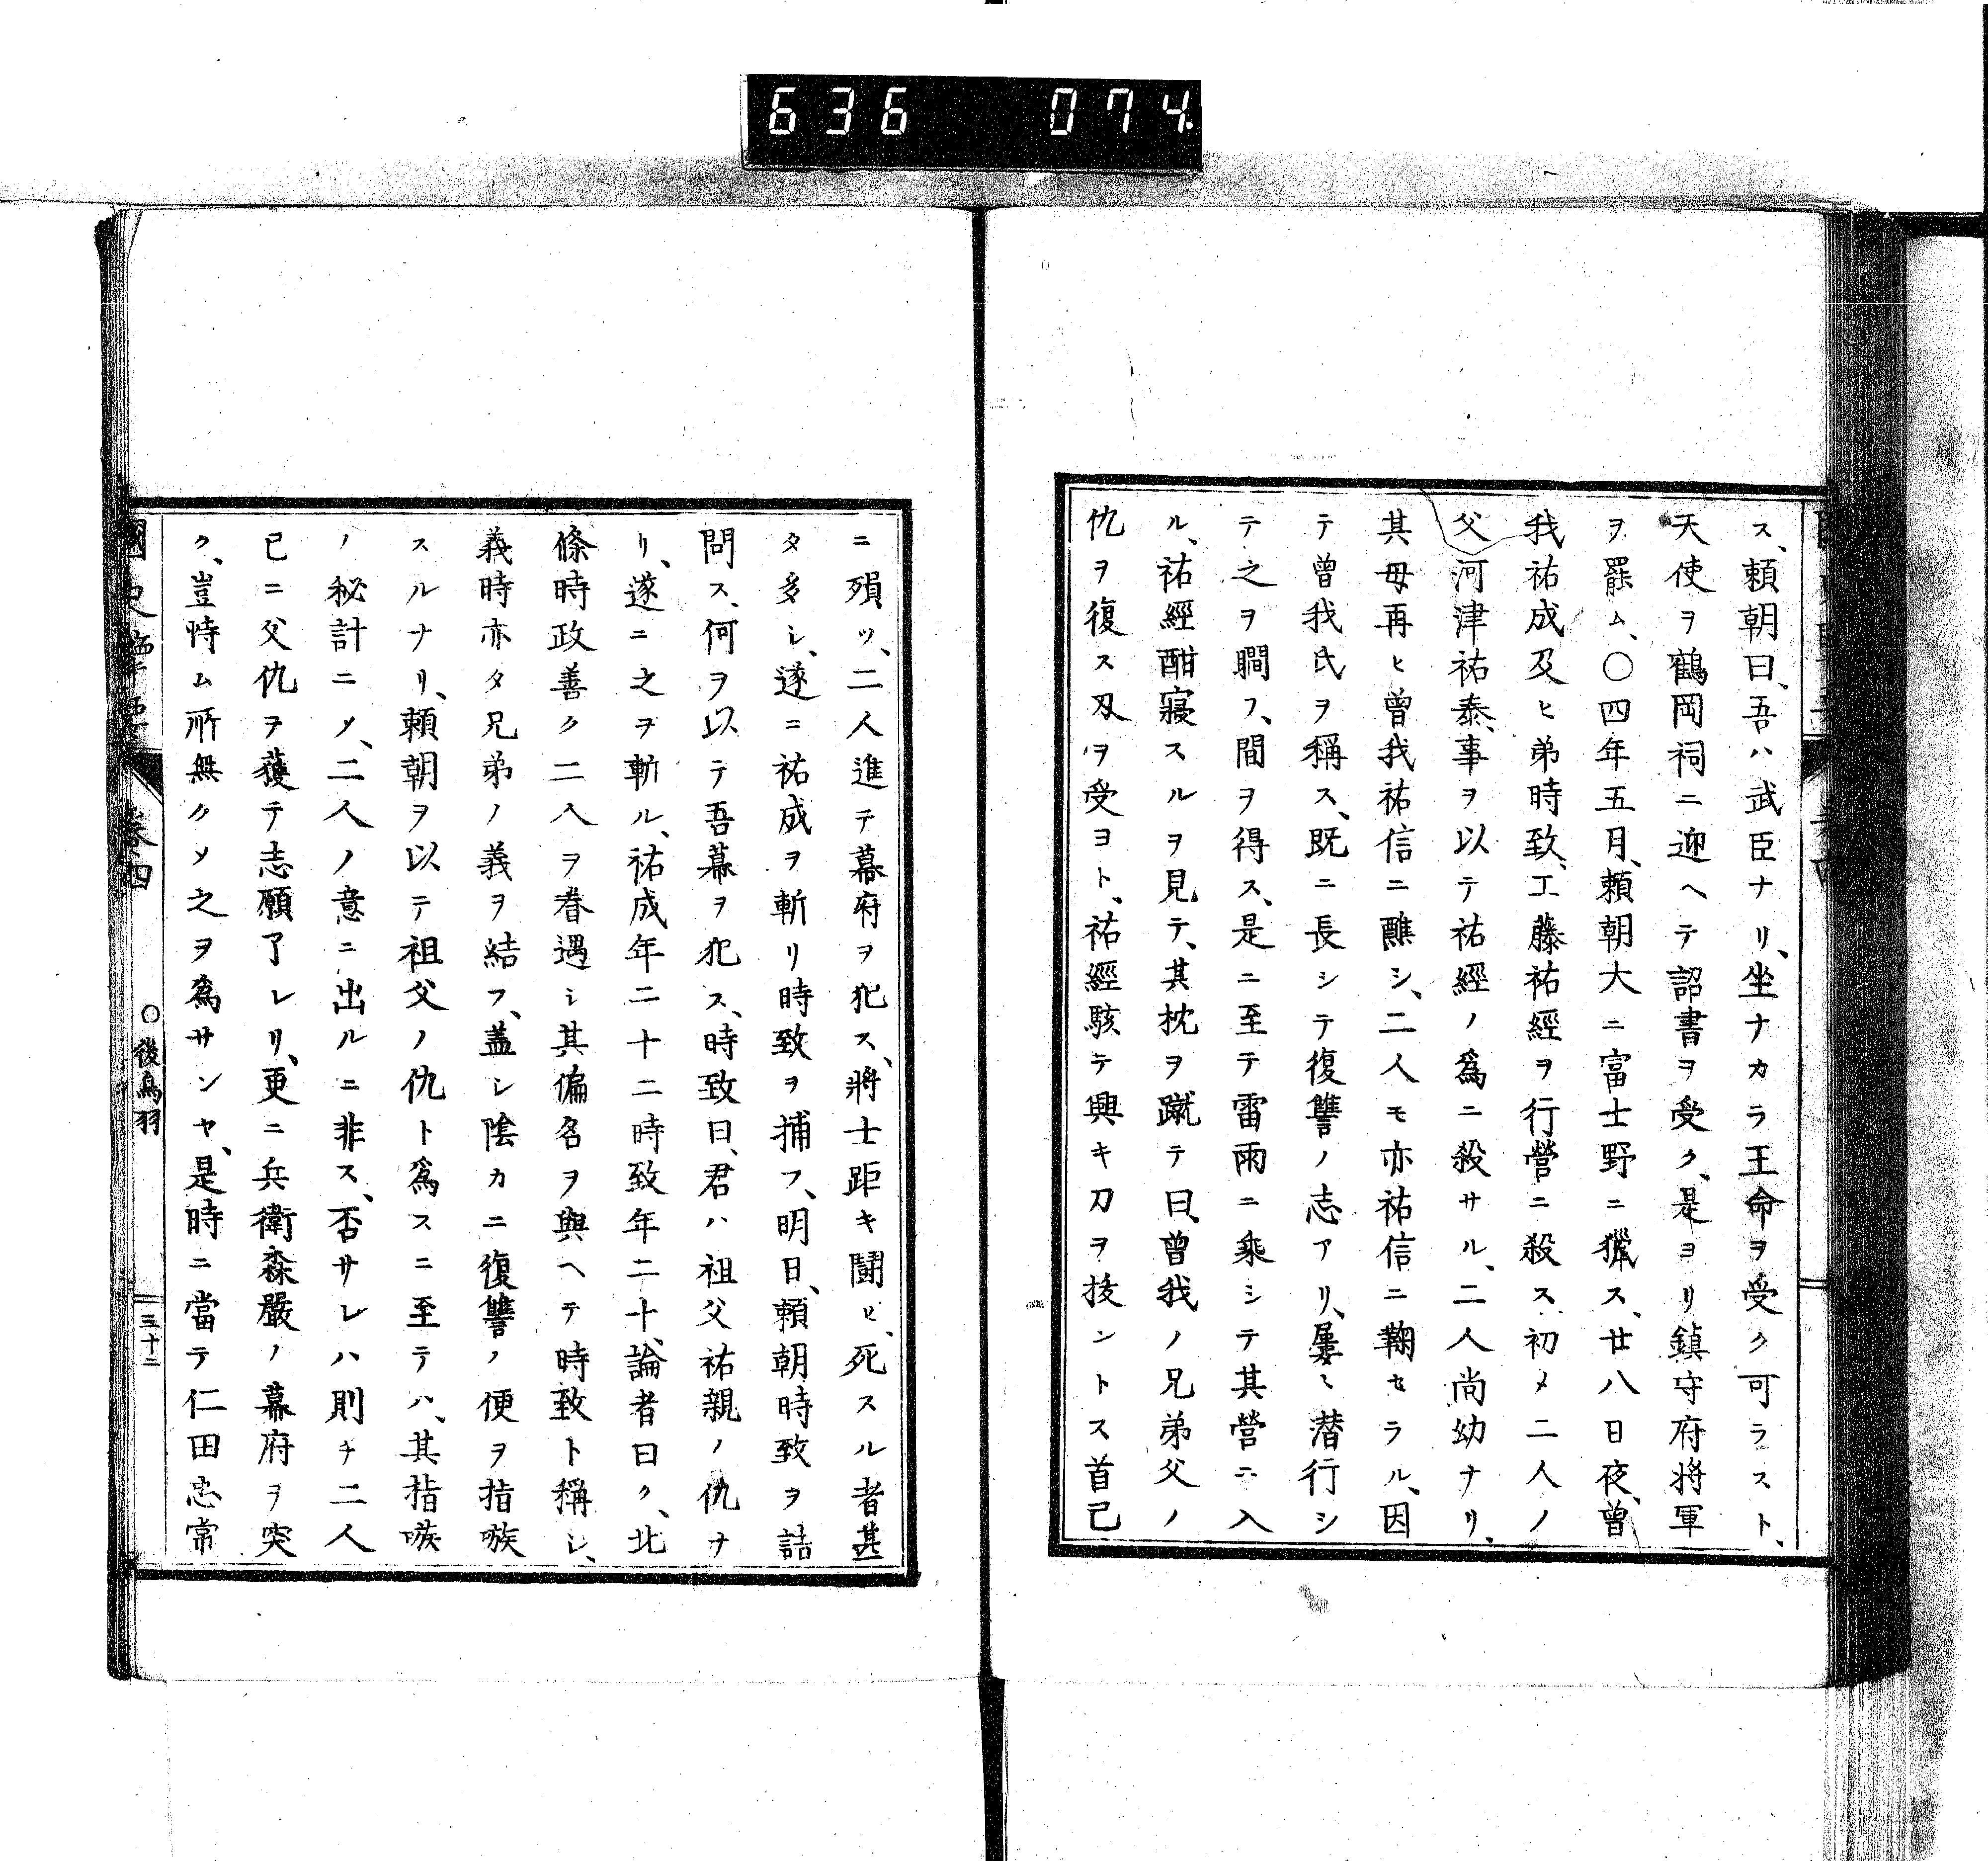 636 074
ス、頼朝曰、吾ハ武臣ナリ、坐ナカラ王命ヲ受ク可ラスト、
天使ヲ鶴岡祠ニ迎ヘテ詔書ヲ受ク、是ヨリ鎮守府將軍
ヲ罷ム、〇四年五月、頼朝大ニ富士野ニ獵ス、廿八日夜、曾
我祐成及ヒ弟時致、工藤祐經ヲ行營ニ殺ス、初メ二人ノ
父河津祐泰、事ヲ以テ祐經ノ爲ニ殺サル、二人尚幼ナリ、
其母再ヒ曾我祐信ニ醮シ、二人モ亦祐信ニ鞠セラル、因
テ曾我氏ヲ稱ス、既ニ長シテ復讐ノ志アリ、屢〻潜行シ
テ之ヲ瞯フ、間ヲ得ス、是ニ至テ雷雨ニ乘シテ其營ニ入
ル、祐經酣寢スルヲ見テ、其枕ヲ蹴テ曰、曾我ノ兄弟父ノ
仇ヲ復ス刄ヲ受ヨト、祐經駭テ興キ刀ヲ抜ントス首已
ニ殞ツ、二人進テ幕府ヲ犯ス、將士距キ鬪ヒ、死スル者甚
タ多シ、遂ニ祐成ヲ斬リ時致ヲ捕フ、明日、頼朝時致ヲ詰
問ス、何ヲ以テ吾幕ヲ犯ス、時致曰、君ハ祖父祐親ノ仇ナ
リ、遂ニ之ヲ斬ル、祐成年二十二時致年二十、論者曰ク、北
條時政善ク二人ヲ眷遇シ其偏名ヲ與ヘテ時致ト稱シ、
義時亦タ兄弟ノ義ヲ結フ、蓋シ陰カニ復讐ノ便ヲ指嗾
スルナリ、頼朝ヲ以テ祖父ノ仇ト爲スニ至テハ、其指嗾
ノ秘計ニソ、二人ノ意ニ出ルニ非ス、否サレハ則チ二人
已ニ父仇ヲ獲テ志願了レリ、更ニ兵衛森嚴ノ幕府ヲ突
ク、豈恃ム所無クソ之ヲ爲サンヤ、是時ニ當テ仁田忠常
國史 卷四 〇後鳥羽 三十二